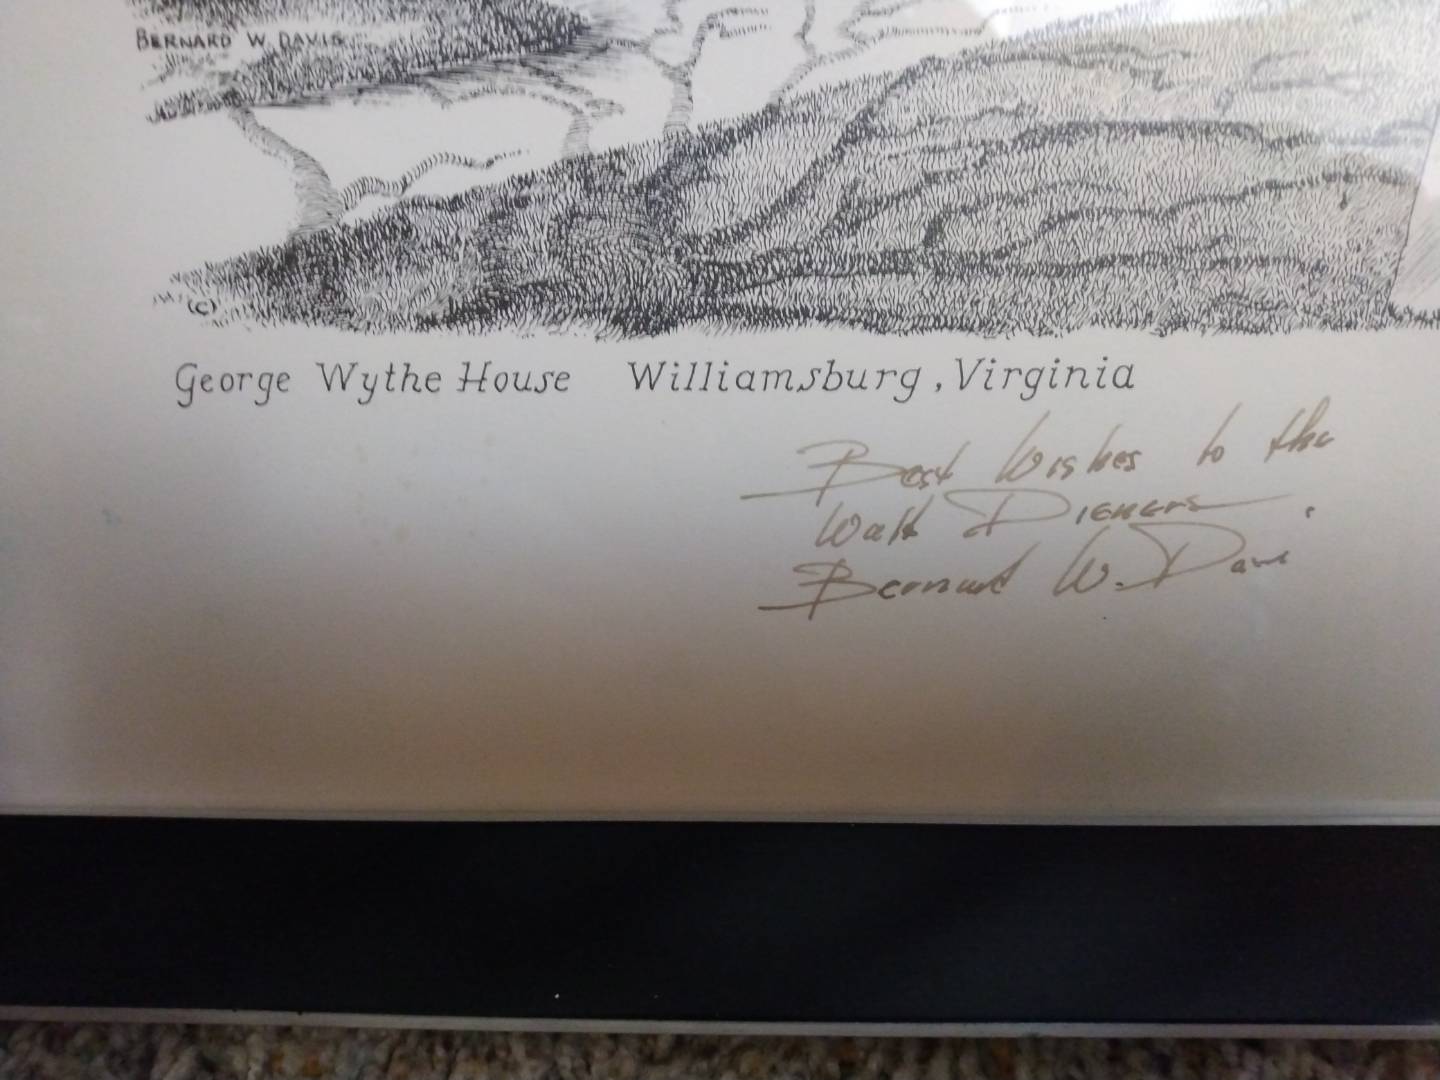 BERNARD W. DAVIS
(C)
George Wythe House Williamsburg, Virginia
Best Wishes to the
Walt Dieners.
Bernard W. Davis